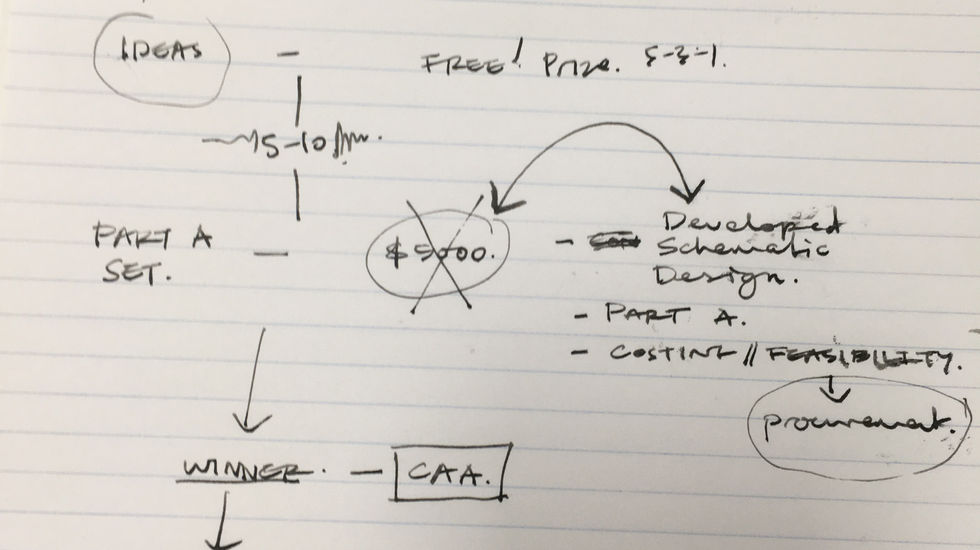 IDEAS -
FREE! Prize. 5-3-1.
5-10
PART A
SET. -
$5000.
- Developed
Schematic
Design.
- PART A.
- COSTING // FEASIBILITY.
procurement.
WINNER. - CAA.